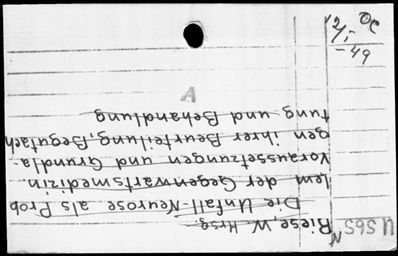 U 5657
Riese, W. Hrsg.
Die Unfall-Neurose als Prob
lem der Gegenwartsmedizin.
Voraussetzungen und Grundla-
gen ihrer Beurteilung, Begutach
tung und Behandlung
A
12/,-
-49